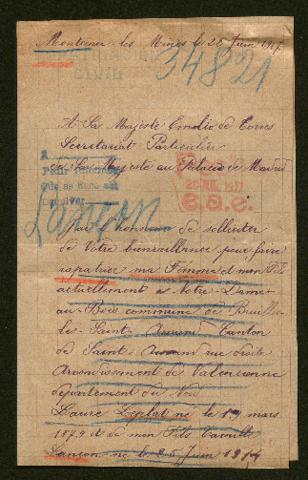 Montceau les Mines le 25 Juin 1917
CIVIL
34821
A Sa Majesté Emilio de Torres
Secretariat Particulier
de Sa Majesté au Palacio de Madrid
Lançon
J'ai l'honneur de solliciter
de Votre bienveillance pour faire
rapatrier ma Femme et mon Fils
actuellement a Notre-Dame-
au-Bois commune de Bruille-
lez-Saint-Amand Canton
de Saint-Amand rue droite
Arrondissement de Valencienne
departement du Nord
Laure Leplat né le 19 mars
1879 et de mon Fils Camille
Lançon né le 26 Juin 1914